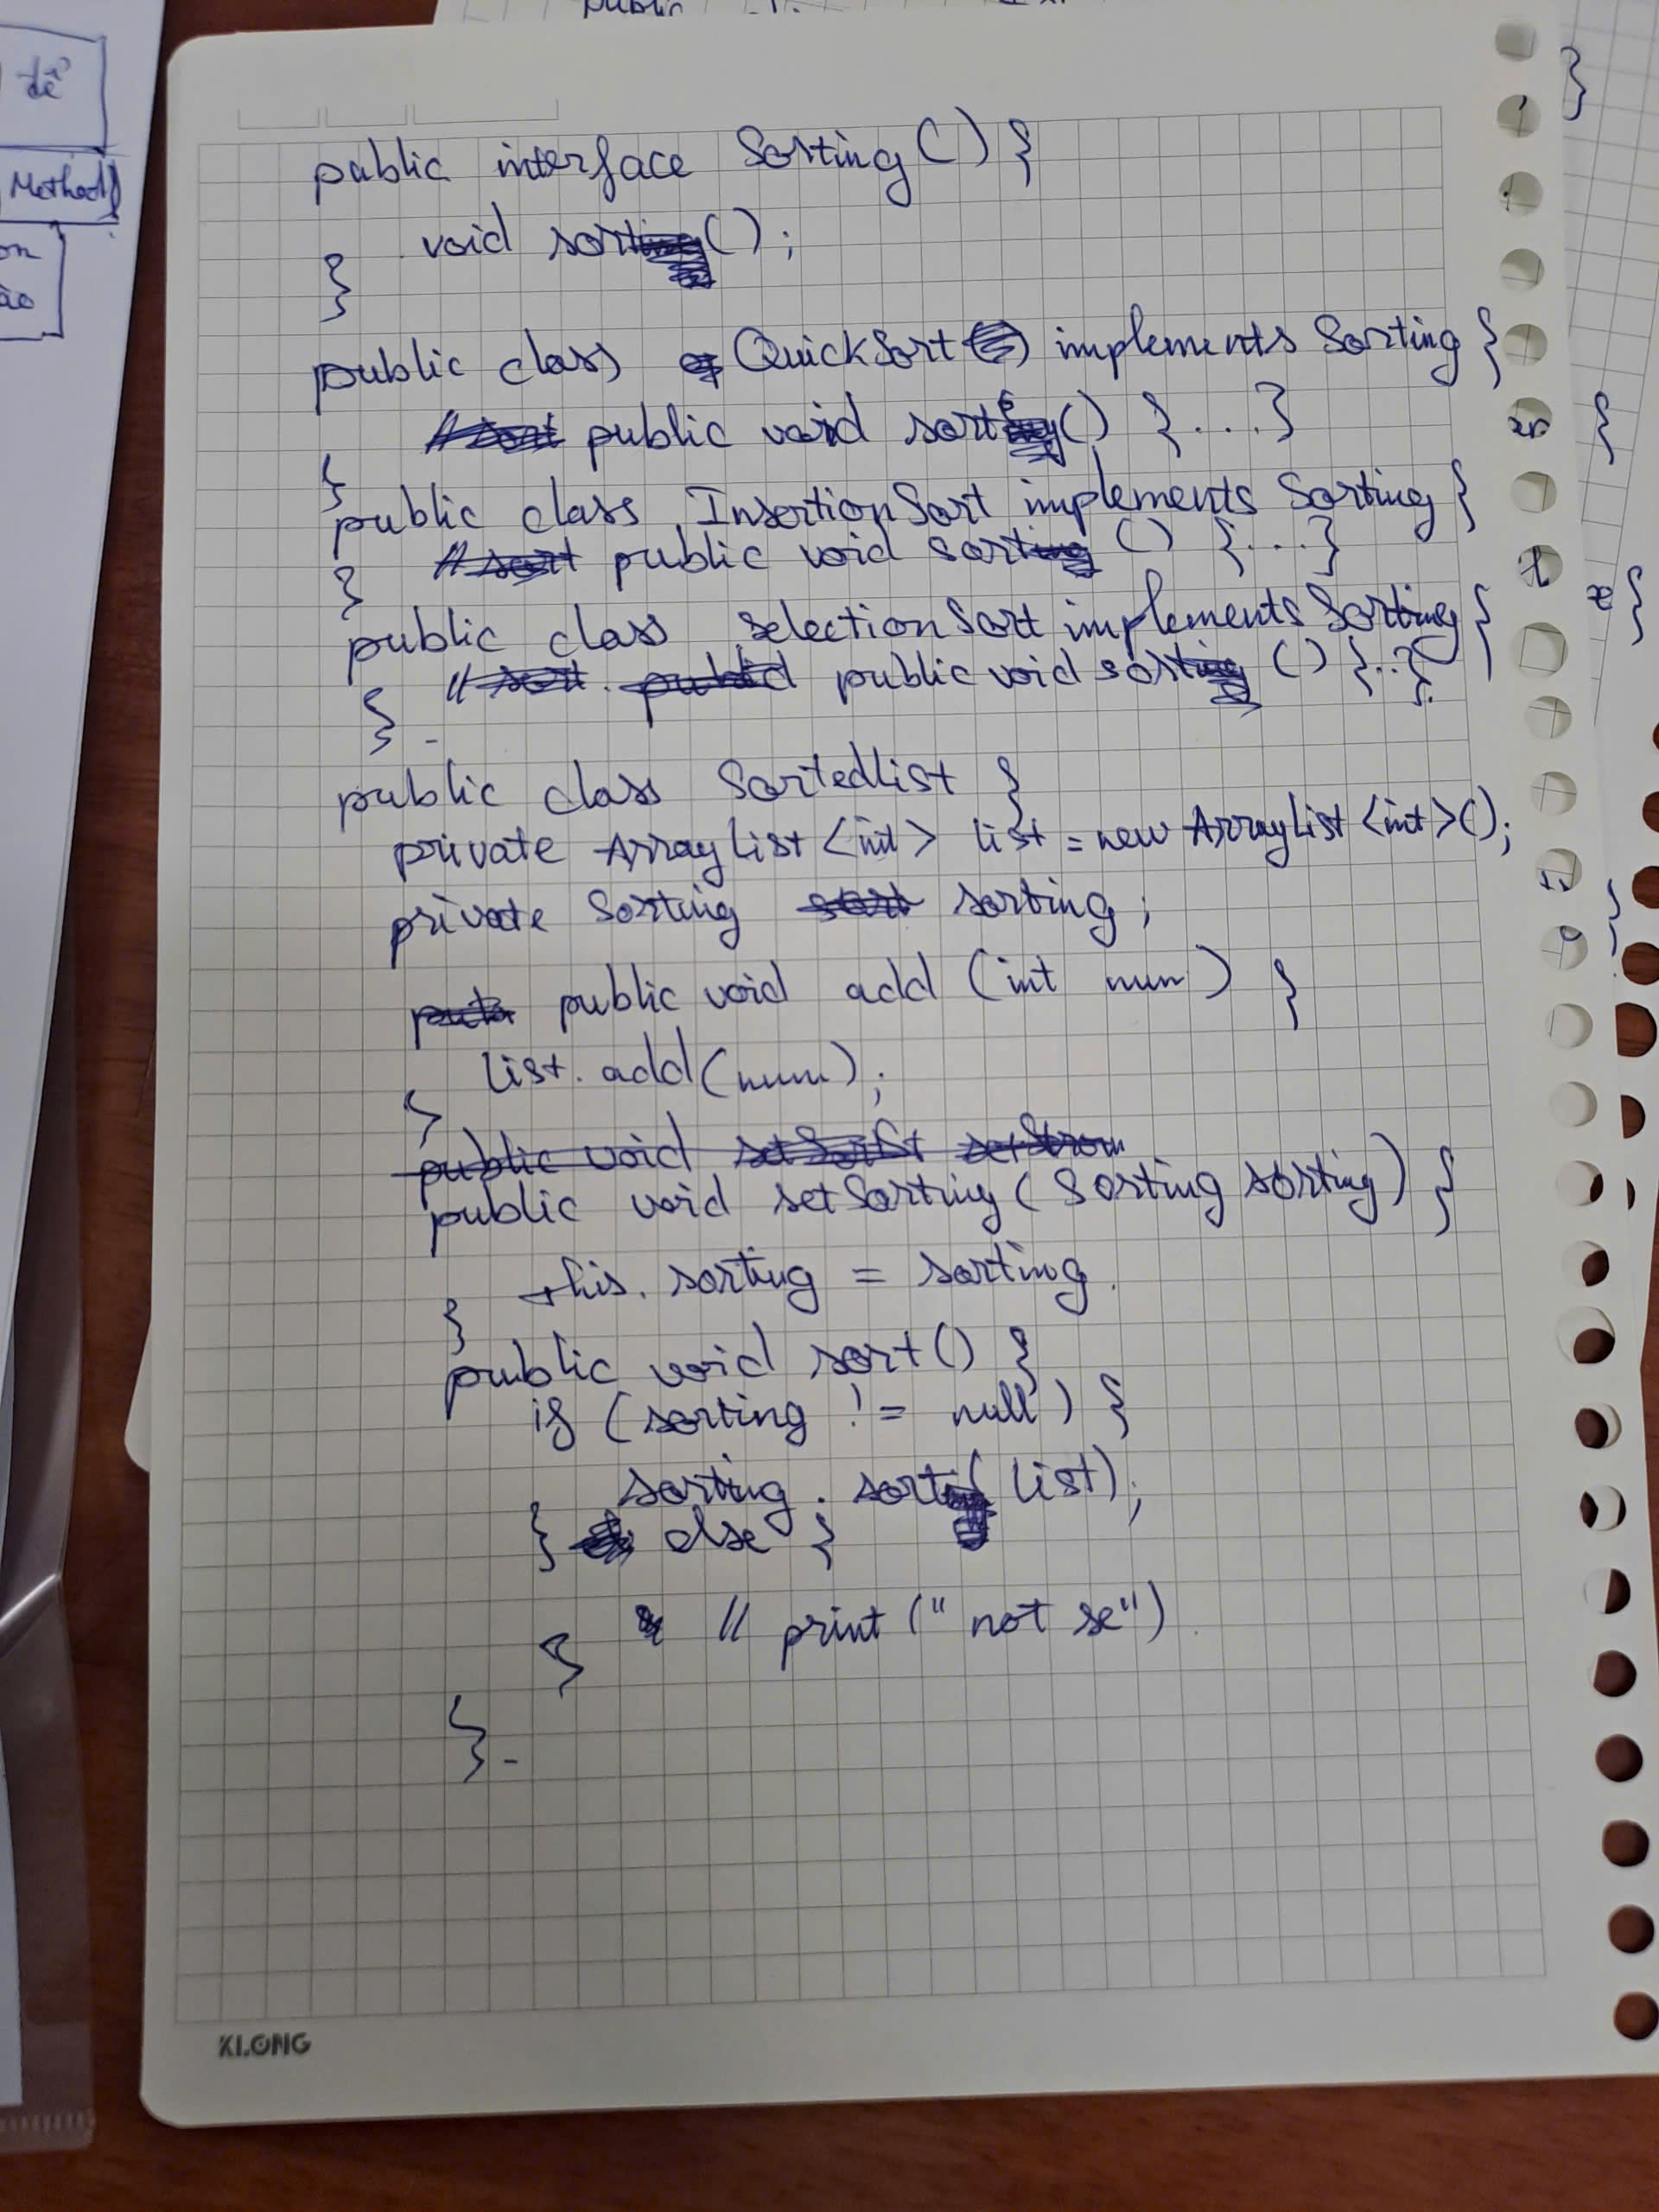 public
dề
Method
on
ào
public interface Sorting () {
void sort();
}
public class QuickSort implements Sorting {
public void sort() {...}
}
public class InsertionSort implements Sorting {
sort public void sort () {...}
}
public class selectionSort implements Sorting {
// sort public void sort () {..}
} -
public class SortedList {
private ArrayList <int> list = new ArrayList <int>();
private Sorting sort sorting;
public void add (int num) {
list.add(num);
}
public void
public void setSorting (Sorting sorting) {
this.sorting = sorting.
}
public void sort() {
if (sorting != null) {
sorting.sort(list);
} else {
// print (" not se")
}
} -
KLONG